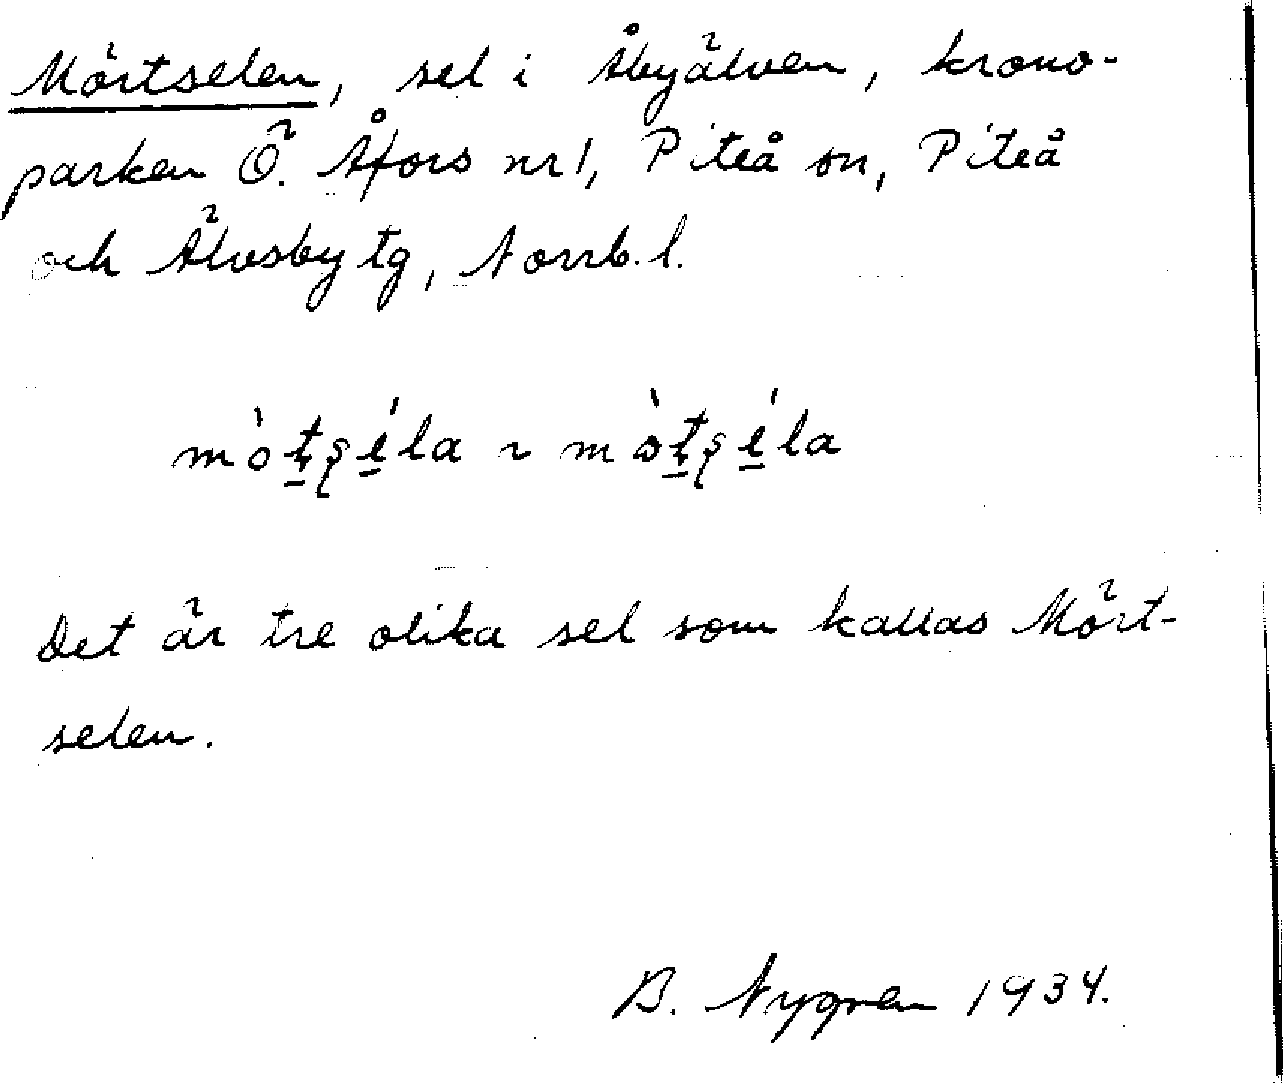 Mörtselen, sel i Åbyälven, krono-
parken Ö. Åfors nr 1, Piteå sn, Piteå
och Älvsby tg, Norrb. l.
mò̀ṭṣéla ~ mò̀ṭṣéla
Det är tre olika sel som kallas Mört-
selen.
B. Nygren 1934.